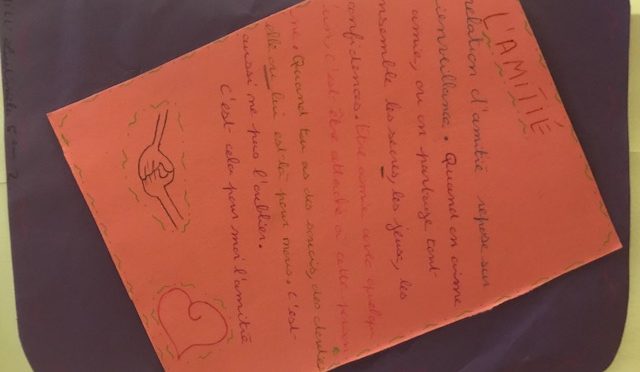 L'AMITIÉ
relation d'amitié repose sur
ienveillance. Quand on aime
amie, ou on partage tout
nsemble les , les jeux, les
confidences. Être amie avec quelqu
un, c'est être attaché à cette person
ne. Quand tu as des soucis, des doute
elle ou lui est là pour nous. C'est
aussi ne pas l'oublier.
C'est cela pour moi l'amitié